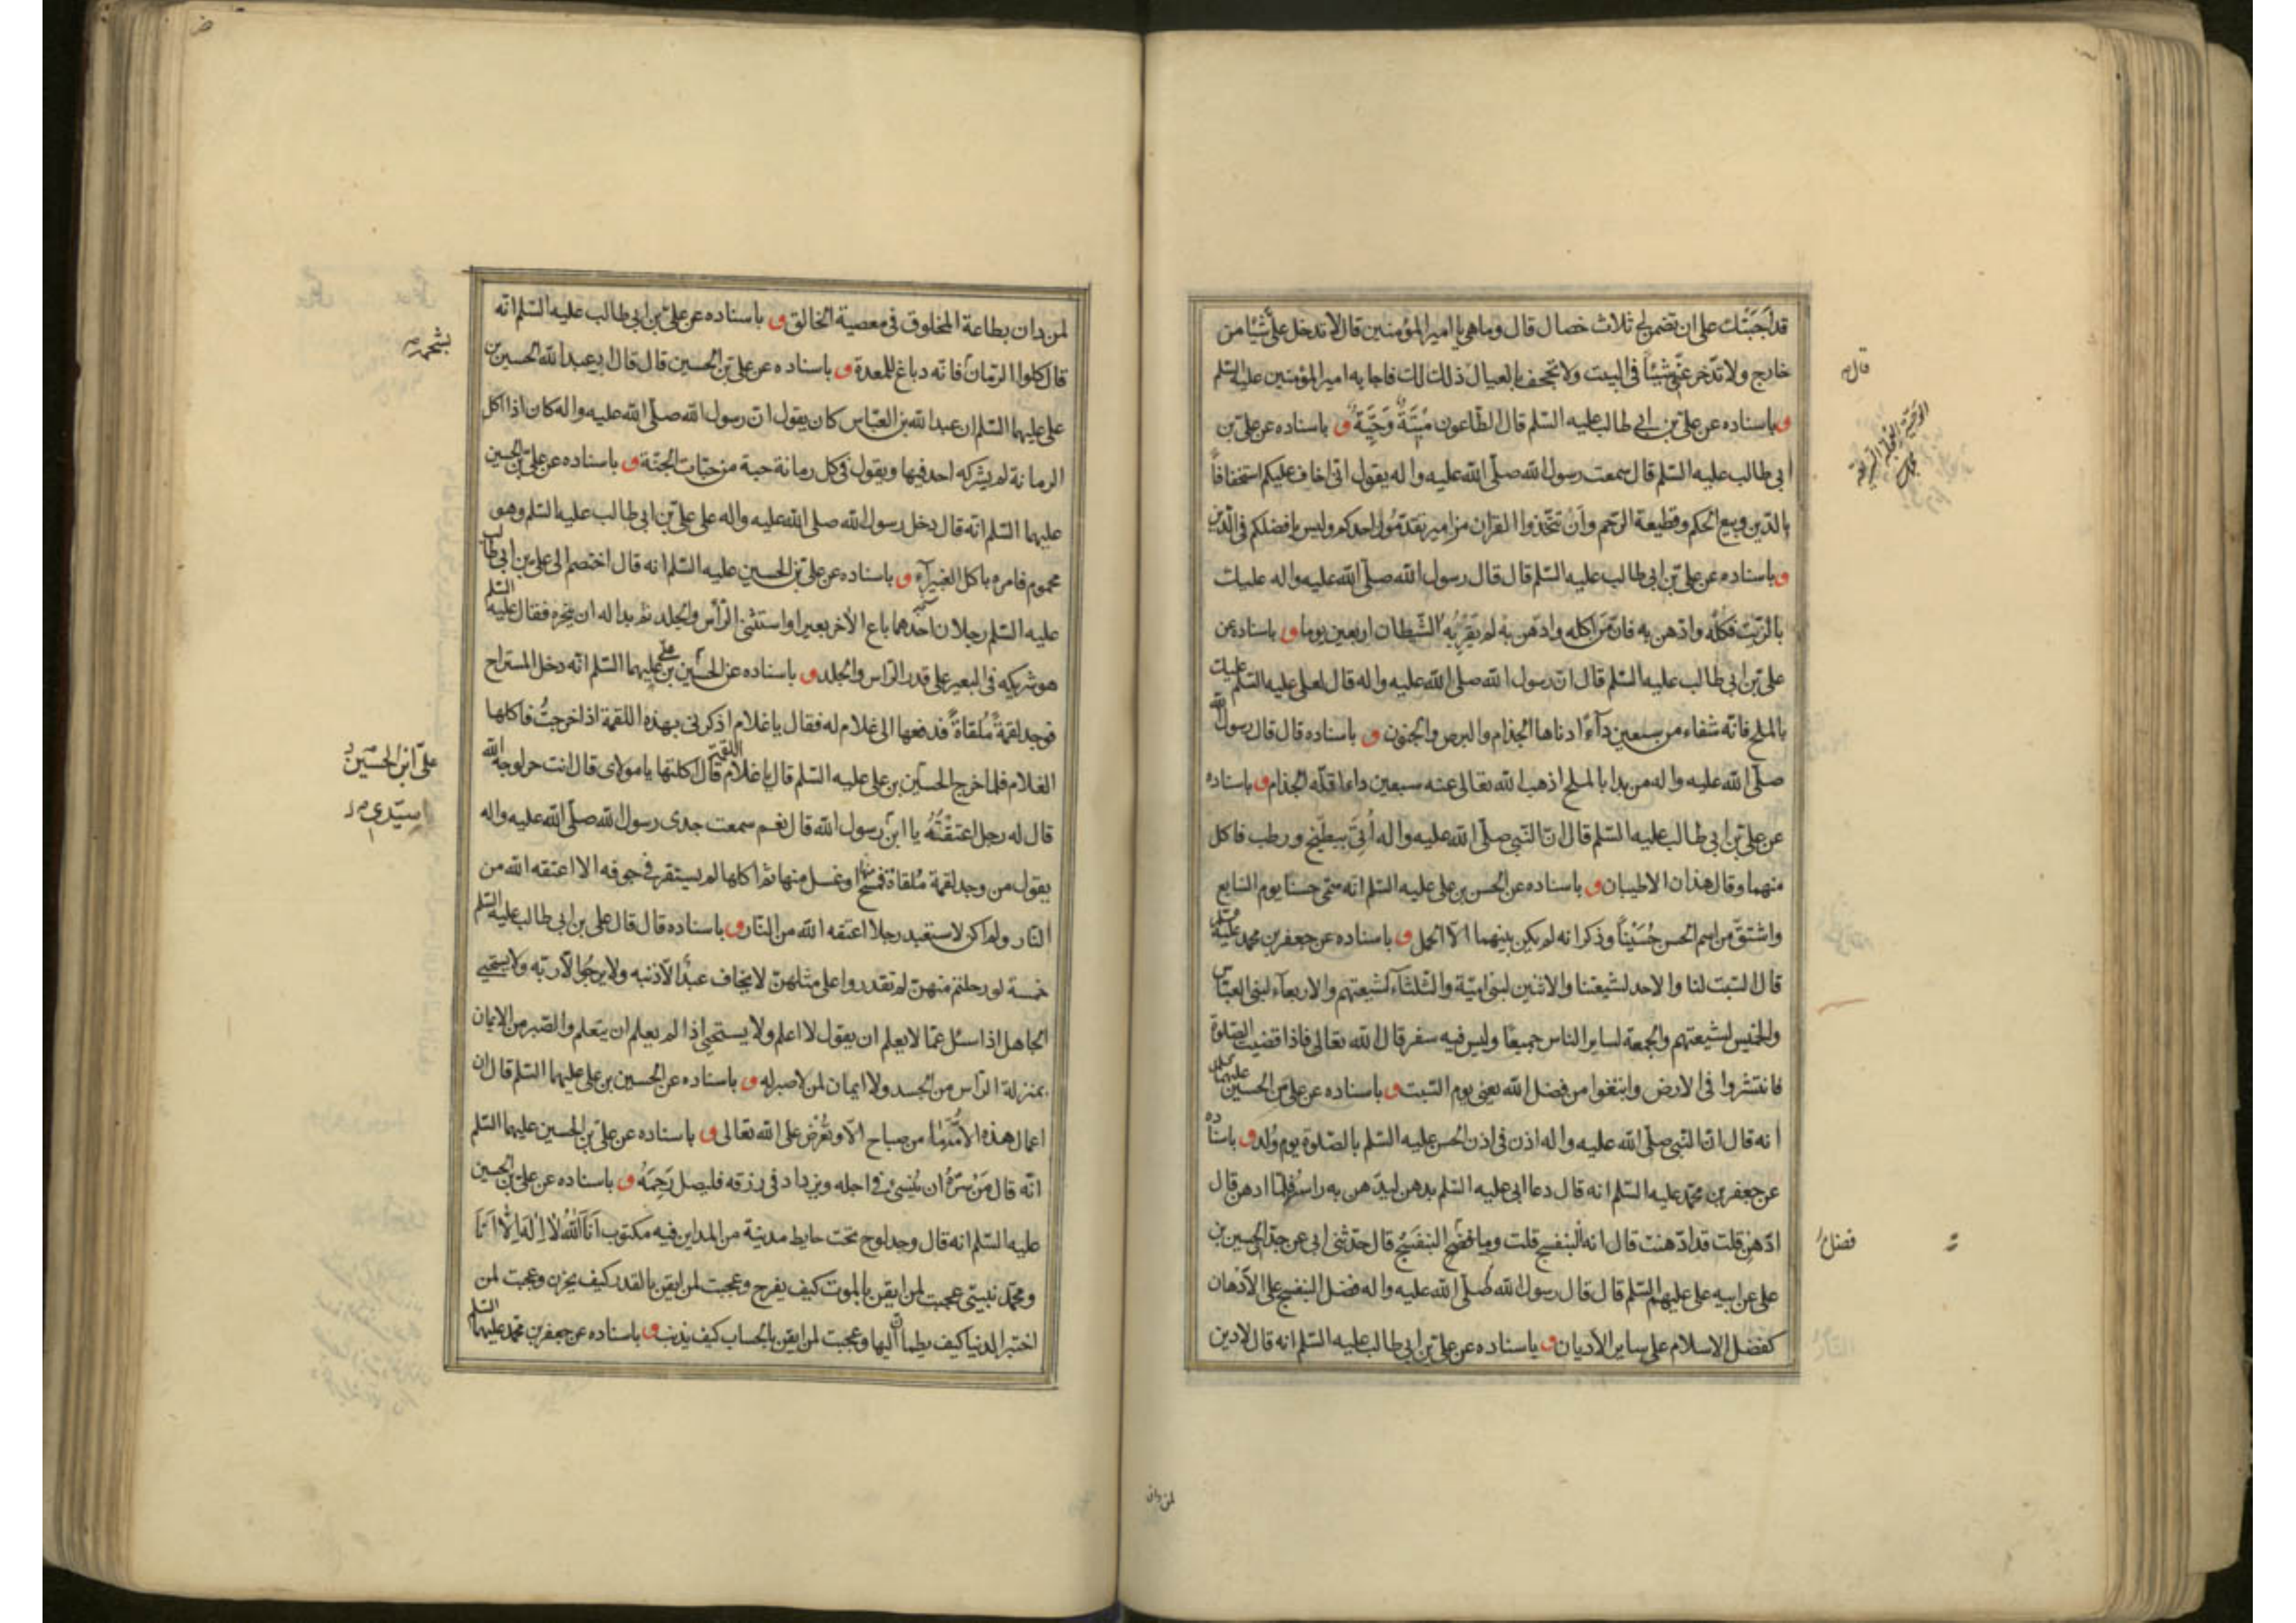 قد اجبتك على ان تضمن لى ثلاث خصال قال وما هى يا امير المؤمنين قال لا تدخل علىّ شيئا من
خارج ولا تدّخر عنّى شيئاً فى البيت ولا تجحف بالعيال قال ذلك لك فاجابه امير المؤمنين عليه السّلم
و باسناده عن علىّ بن ابى طالب عليه السّلم قال الطّاعون مَيْتَةٌ وَحِيَّةٌ و باسناده عن علىّ بن
ابى طالب عليه السّلم قال سمعت رسول الله صلّى الله عليه واله يقول انّى اخاف عليكم استخفافاً
بالدّين وبيع الحكم وقطيعة الرّحم وأن تتّخذوا القران مزامير تقدّمُون احدكم وليس بافضلكم فى الدّين
و باسناده عن علىّ بن ابى طالب عليه السّلم قال قال رسول الله صلّى الله عليه واله عليك
بالزّيت فكُلْه وادّهن به فان مَن اكله وادّهن به لم يقرَبْه الشّيطان اربعين يوما و باسناده عن
علىّ بن ابى طالب عليه السّلم قال انّ رسول الله صلى الله عليه واله قال لعلى عليه السّلم عليك
بالملح فانّه شفاء من سبعين دآءً ادناها الجذام والبرص والجنون و باسناده قال قال رسول الله
صلّى الله عليه واله من بدا بالملح اذهب الله تعالى عنه سبعين داءا اقلّه الجذام و باسناده
عن علىّ بن ابى طالب عليه السّلم قال انّ النّبى صلّى الله عليه واله أُتِىَ ببطّيخ ورطب فاكل
منهما وقال هذان الاطيبان و باسناده عن الحسن بن على عليه السّلم انّه سمّى حسنا يوم السّابع
واشتقّ من اسم الحسن حُسَيْناً وذكر انه لم يكن بينهما الّا الحمل و باسناده عن جعفر بن محمد عليه السّلم
قال السّبت لنا والاحد لشيعتنا والاثنين لبنى اميّة والثّلثآء لشيعتهم والاربعآء لبنى العبّاس
والخميس لشيعتهم والجمعة لساير الناس جميعًا وليس فيه سفر قال الله تعالى فاذا قضيت الصّلوة
فانتشروا فى الارض وابتغوا من فضل الله يعنى يوم السّبت و باسناده عن علىّ بن الحسين عليهما السّلم
انه قال انّ النّبى صلّى الله عليه واله اذن فى اذن الحسن عليه السّلم بالصّلوة يوم وُلد و باسناده
عن جعفر بن محمّد عليه السّلم انه قال دعا ابى عليه السّلم بدهن ليدّهن به راسه فلمّا ادهن قال
ادّهِن قلت قد ادّهنت قال انه البنفسج قلت وما فضل البنفسج قال حدّثنى ابى عن جدّى الحسين بن
على عن ابيه على عليهم السّلم قال قال رسول الله صلّى الله عليه واله فضل البنفسج على الأدهان
كفضل الاسلام على ساير الأديان و باسناده عن علىّ بن ابى طالب عليه السّلم انه قال لا دين
قال
فضلُ
لمن دان
لمن دان بطاعة المخلوق فى معصية الخالق و باسناده عن علىّ بن ابى طالب عليه السّلم انّه
قال كلوا الرّمّان فانّه دباغ للمعدة و باسناده عن على بن الحسين قال قال ابو عبد الله الحسين بن
على عليهما السّلم ان عبد الله بن العبّاس كان يقول انّ رسول الله صلّى الله عليه واله كان اذا اكل
الرمانة لم يشركه احد فيها ويقول فى كل رمانة حبة من حبّات الجنّة و باسناده عن علىّ بن الحسين
عليهما السّلم انّه قال دخل رسول الله صلى الله عليه واله على علىّ بن ابى طالب عليه السّلم وهو
محموم فامره باكل الغبيرآء و باسناده عن على بن الحسين عليه السّلم انه قال اختصم الى على بن ابى طالب
عليه السّلم رجلان احدهما باع الأخر بعيرا واستثنى الرّأس والجلد ثم بدا له ان ينحره فقال عليه السّلم
هو شريكه فى البعير على قدر الرّاس والجلد و باسناده عن الحسين بن على عليهما السّلم انّه دخل المستراح
فوجد لقمةً مُلقاةً فدفعها الى غلام له فقال يا غلام اذكرنى بهذه اللقمة اذا خرجتُ فاكلها
الغلام فلما خرج الحسين بن على عليه السّلم قال يا غلام اللقمة قال اكلتها يا مولاى قال انت حر لوجه الله
قال له رجل اعتقْتَهُ يا ابن رسول الله قال نعم سمعت جدى رسول الله صلّى الله عليه واله
يقول من وجد لقمة مُلقاة فمسح منها او غسل منها ثم اكلها لم يستقر فى جوفه الا اعتقه الله من
النّار ولم اكن لاستعبد رجلا اعتقه الله من النّار و باسناده قال قال على بن ابى طالب عليه السّلم
خمسة لو رحلتم منهنّ لم تقدروا على مثلهنّ لا يخاف عبدٌ الّا ذنبه ولا يرجُوا الّا ربّه ولا يستحيى
الجاهل اذا سئل عمّا لا يعلم ان يقول لا اعلم ولا يستحيى اذا لم يعلم ان يتعلم والصّبر من الايمان
بمنزلة الرّاس من الجسد ولا ايمان لمن لا صبر له و باسناده عن الحسين بن على عليهما السّلم قال ان
اعمال هذه الأمّة ما من صباح الّا وتُعْرَض على الله تعالى و باسناده عن علىّ بن الحسين عليهما السّلم
انّه قال مَنْ سَرَّهُ ان يُنسىَ فى اجله ويزداد فى رزقه فليصل رَحِمَهُ و باسناده عن علىّ بن الحسين
عليه السّلم انه قال وجد لوح تحت حايط مدينة من المداين فيه مكتوب أنَا اللهُ لا اِلٰهَ اِلّا أنَا
ومحمّد نبيّى عجبت لمن ايقن بالموت كيف يفرح وعجبت لمن ايقن بالقدر كيف يحزن وعجبت لمن
اختبر الدنيا كيف يطمأن اليها وعجبت لمن ايقن بالحساب كيف يذنب و باسناده عن جعفر بن محمّد عليهما السّلم
بشحمه
علىّ ابن الحسين
سيّدى